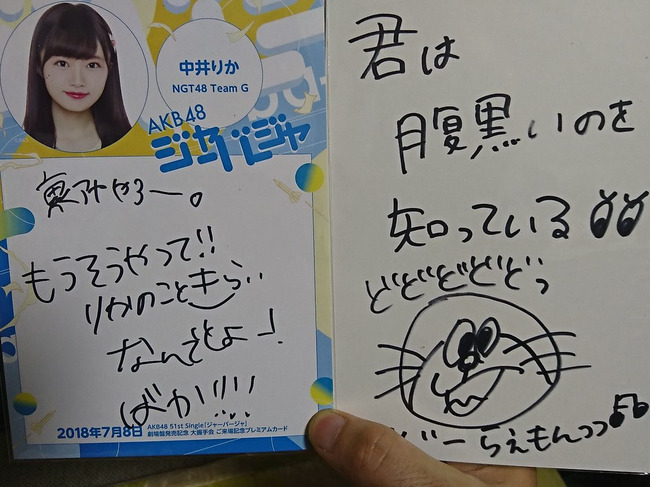 中井りか
NGT48 Team G
AKB48
ジャーバージャ
もうそうやって!!
りかのこときらい
なんでしょー!
ばか!!!!
2018年7月8日
AKB48 51st Single「ジャーバージャ」
劇場盤発売記念 大握手会 ご来場記念プレミアムカード
君は
腹黒いのを
知っている
どどどどどっ
ーらえもんっっ